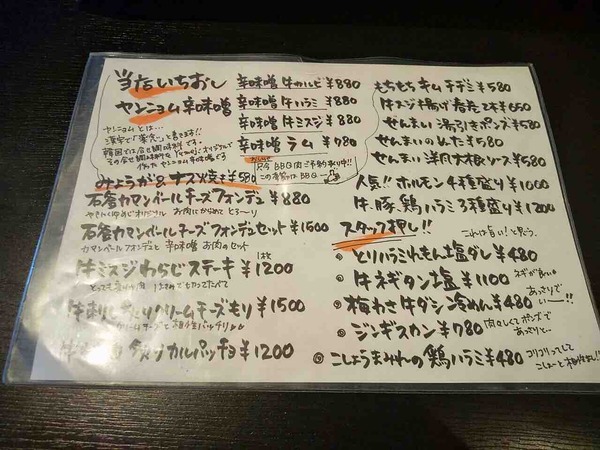 当店いちおし
ヤンニョム辛味噌
辛味噌 牛カルビ ¥880
辛味噌 牛ハラミ ¥880
辛味噌 牛ミスジ ¥880
辛味噌 ラム ¥980
ヤンニョムとは…
みょうが&ナス焼き¥580
石窯カマンベールチーズフォンデュ ¥880
石窯カマンベールチーズフォンデュセット ¥1500
カマンベールフォンデュ 辛味噌 お肉のセット
牛ミスジわらじステーキ ¥1200
1枚
牛刺し炙りクリームチーズもり ¥1500
炙りカルパッチョ ¥1200
もちもちキムチヂミ ¥580
牛スジ揚げ春巻2本 ¥650
せんまい湯引きポンズ ¥580
せんまいのぬた ¥580
せんまい 洋風大根ソース ¥580
人気!! ホルモン4種盛り ¥1000
牛豚鶏ハラミ3種盛り ¥1200
スタッフ押し!!
これは旨い!と思う。
とりハラミれもん塩ダレ ¥480
牛ネギタン塩 ¥1100
梅わさ牛ダシ冷めん ¥480
ジンギスカン ¥780
こしょうまみれの鶏ハラミ ¥480